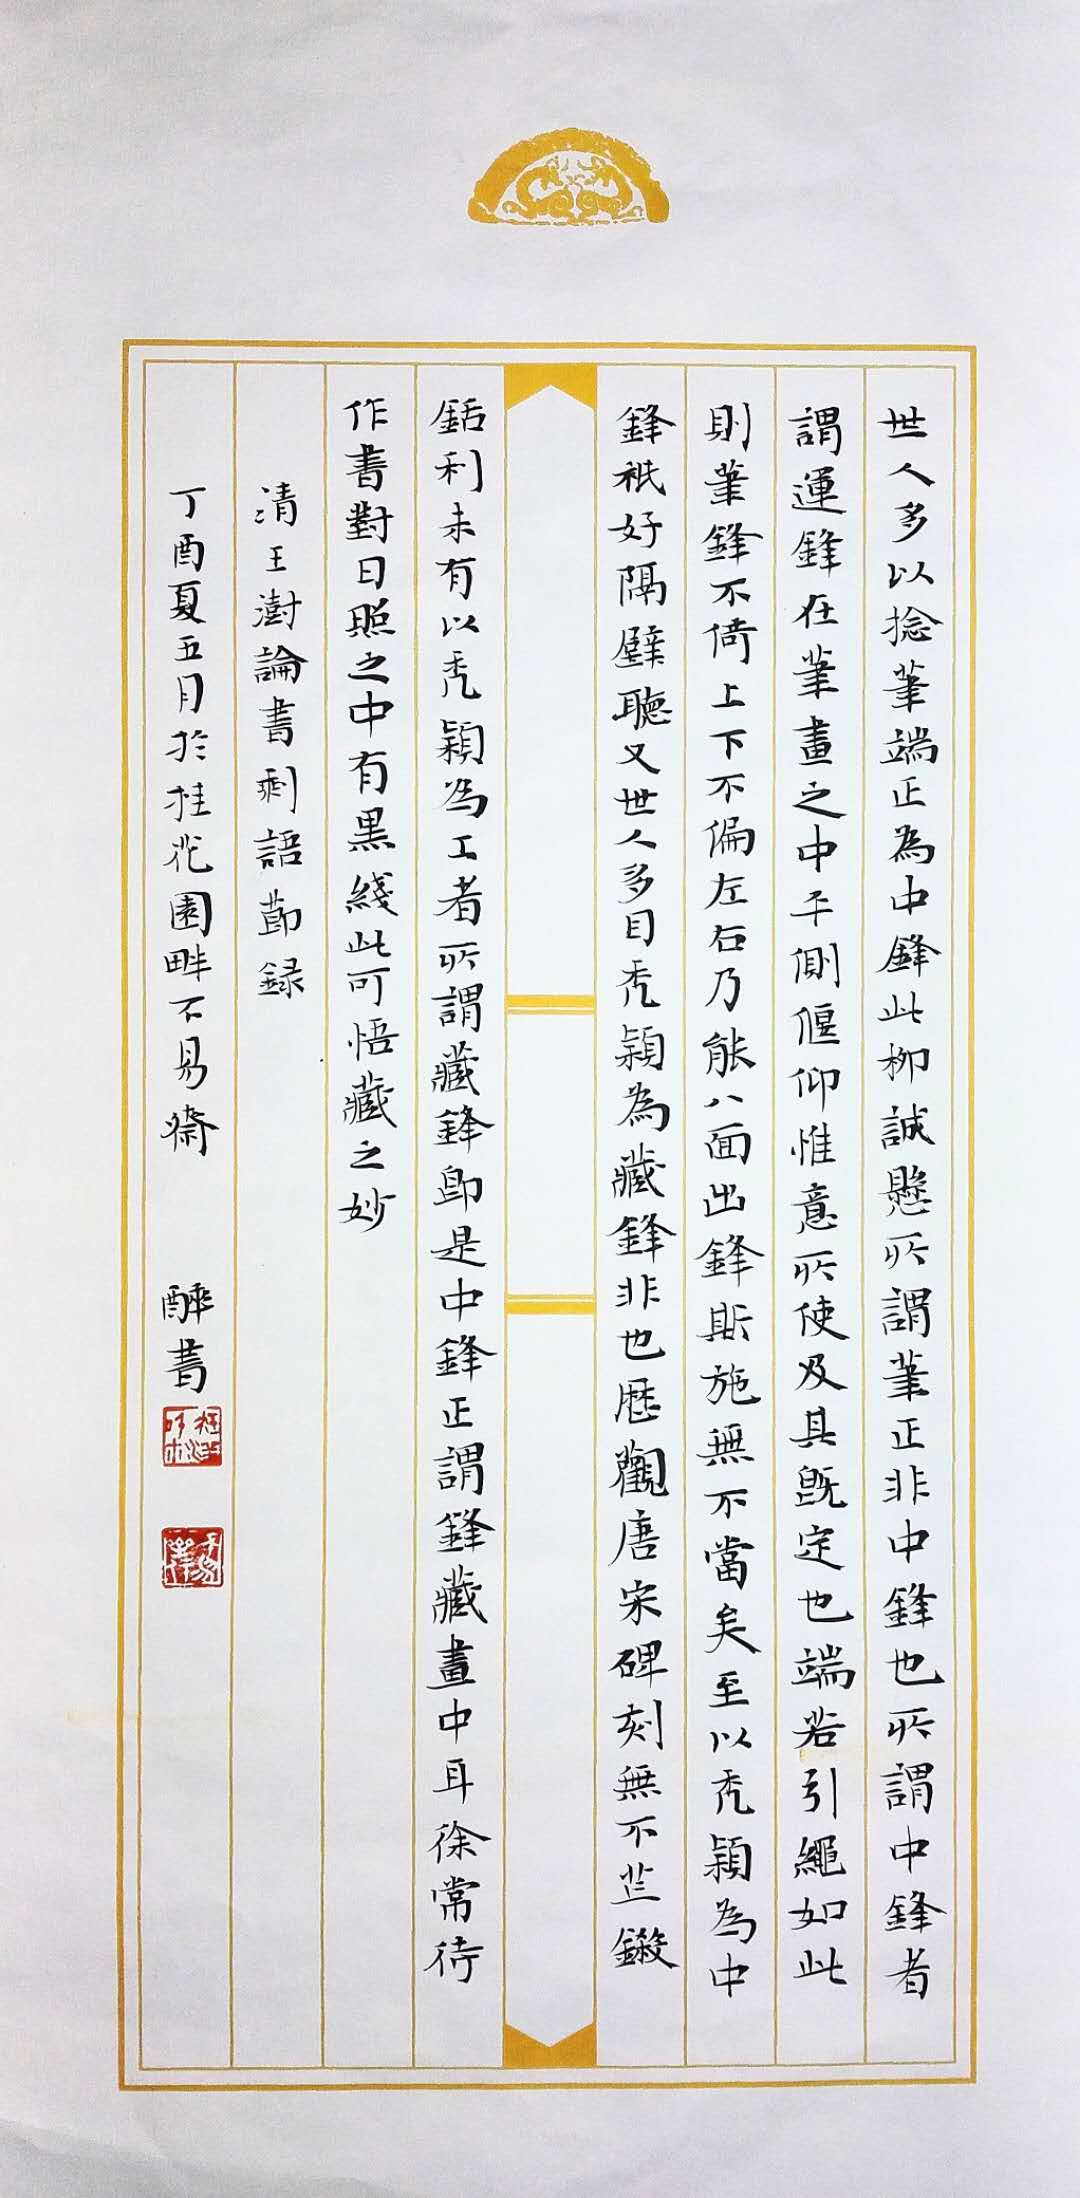 世人多以捻筆端正為中鋒此柳誠懸所謂筆正非中鋒也所謂中鋒者
謂運鋒在筆畫之中平側偃仰惟意所使及其既定也端若引繩如此
則筆鋒不倚上下不偏左右乃能八面出鋒斯施無不當矣至以禿穎為中
鋒衹好隔壁聽又世人多目禿穎為藏鋒非也歷觀唐宋碑刻無不芒鎩
銛利未有以禿穎為工者所謂藏鋒即是中鋒正謂鋒藏畫中耳徐常侍
作書對日照之中有黑綫此可悟藏之妙
清王澍論書剩語節録
丁酉夏五月於桂花園畔不易齋 醉書